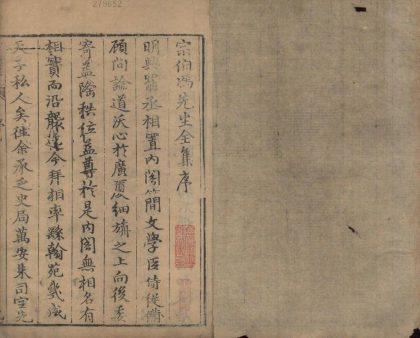 278652
宗伯馮先生全集序
明興罷丞相置內閣簡文學臣侍從備
顧問論道沃心於廣廈細旃之上向後委
寄益隆秩位益尊於是內閣無相名有
相實而沿襲至今拜相率繇翰苑幾成
天子私人矣往余承乏史局萬安朱司空先